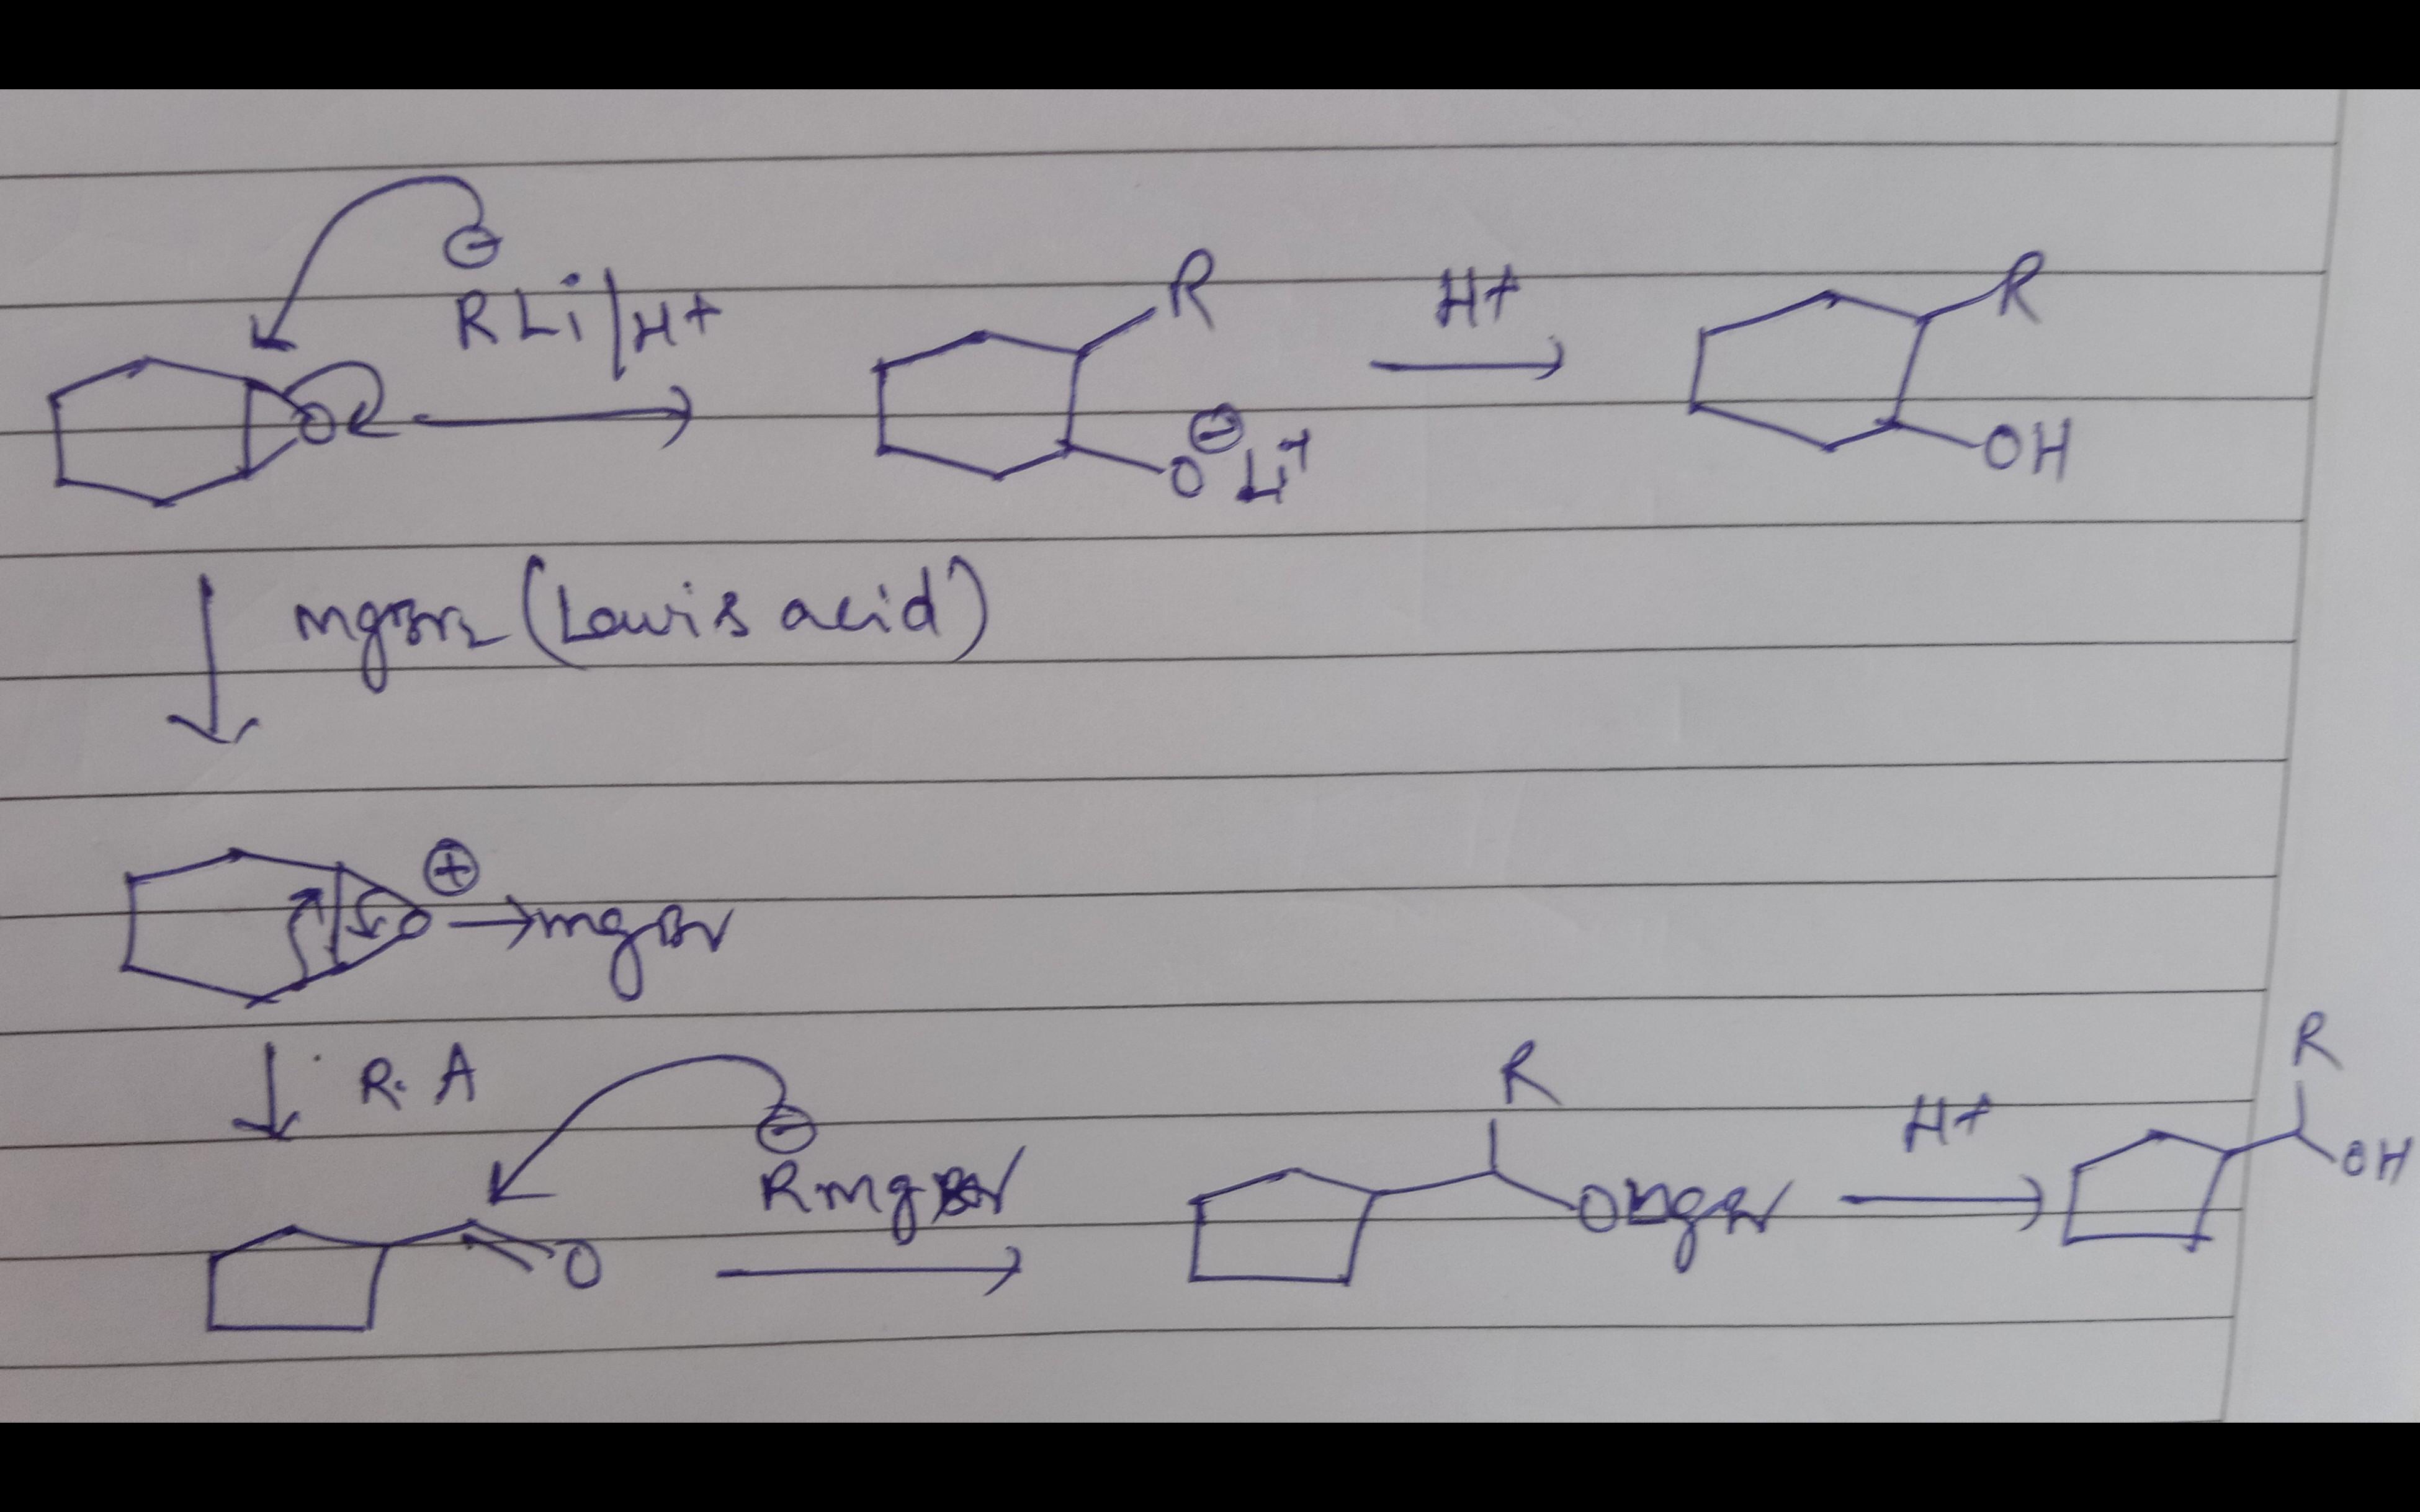 ⊖
RLi/H+
R
H+
R
O
O⊖ Li+
OH
mgBr2 (Lewis acid)
⊕
O→mgBr
R. A
⊖
RmgBr
O
R
OmgBr
H+
R
OH